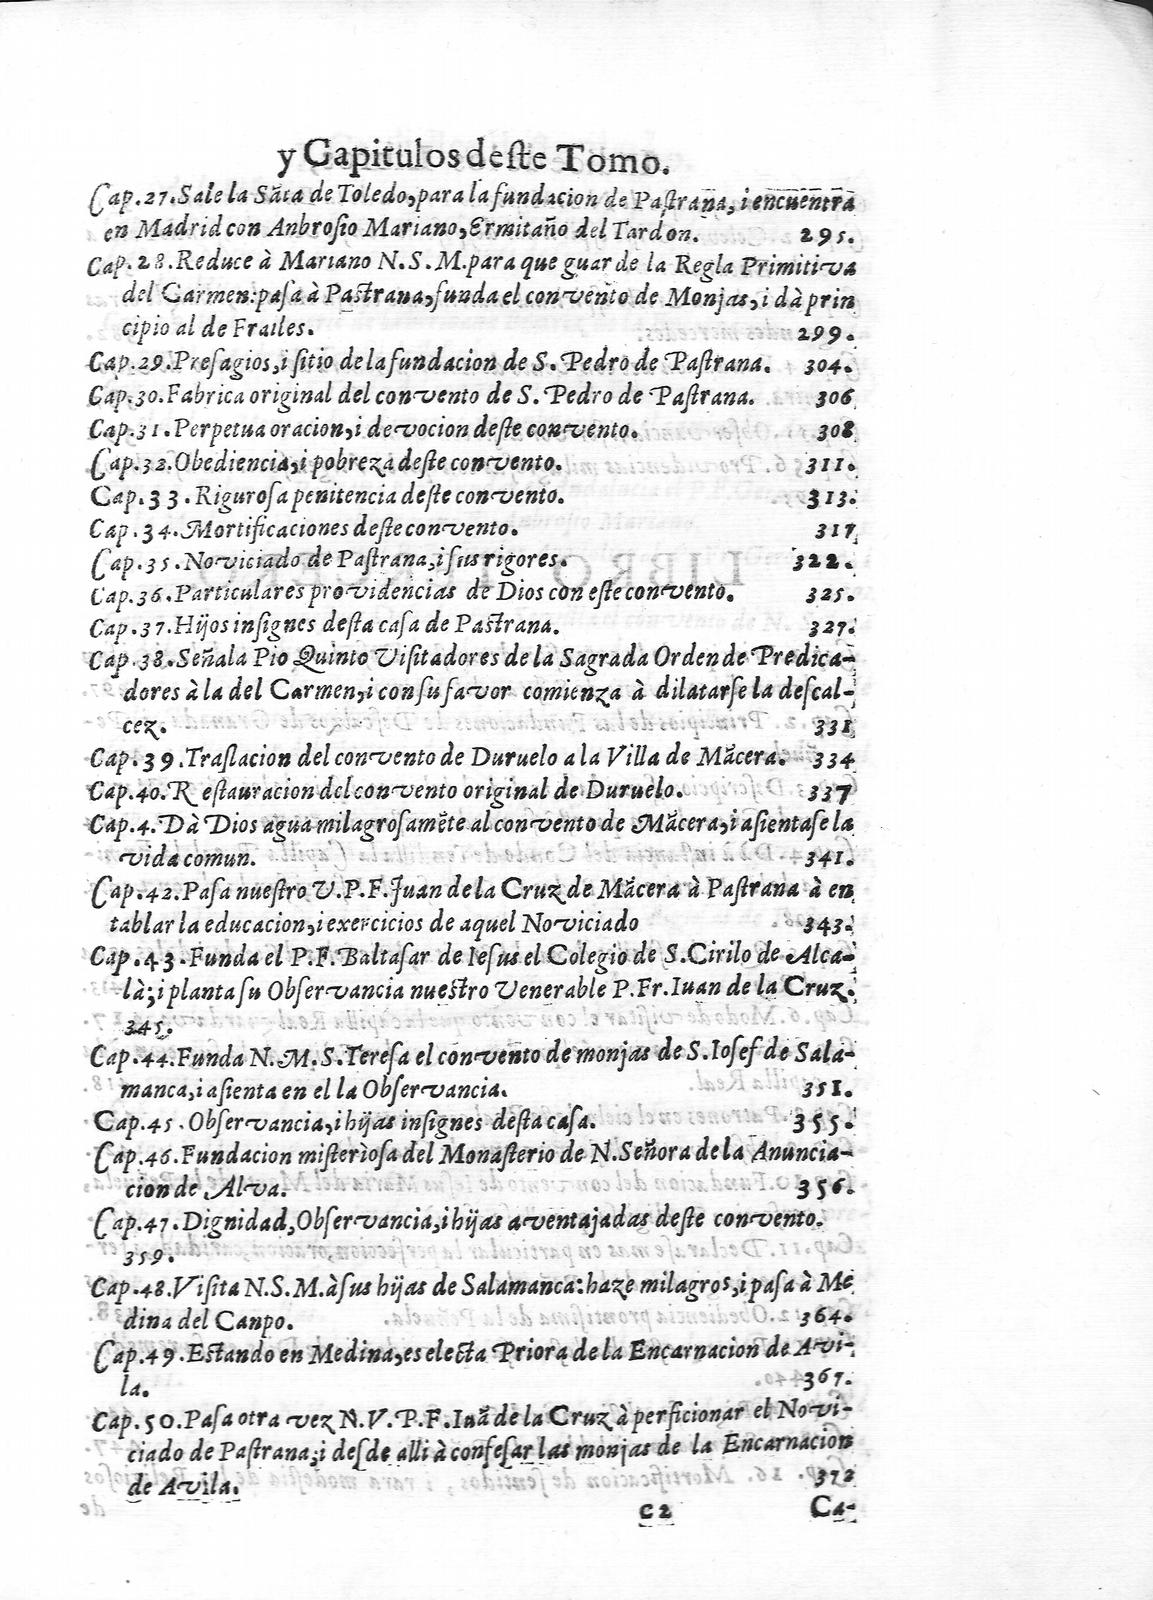 y Capitulos deste Tomo.
Cap.27.Sale la Sãta de Toledo,para la fundacion de Pastrana, i encuentra
en Madrid con Anbrosio Mariano,Ermitaño del Tardon. 295.
Cap.28.Reduce à Mariano N.S.M.para que guarde la Regla Primitiva
del Carmen:pasa à Pastrana,funda el convento de Monjas,i dà prin
cipio al de Frailes. 299.
Cap.29.Presagios,i sitio de la fundacion de S. Pedro de Pastrana. 304.
Cap.30.Fabrica original del convento de S. Pedro de Pastrana. 306
Cap.31.Perpetua oracion,i devocion deste convento. 308
Cap.32.Obediencia,i pobreza deste convento. 311.
Cap.33.Rigurosa penitencia deste convento. 313.
Cap.34.Mortificaciones deste convento. 317
Cap.35.Noviciado de Pastrana,i sus rigores. 322.
Cap.36.Particulares providencias de Dios con este convento. 325.
Cap.37.Hijos insignes desta casa de Pastrana. 327.
Cap.38.Señala Pio Quinto Visitadores de la Sagrada Orden de Predica-
dores à la del Carmen,i con su favor comienza à dilatarse la descal-
cez. 331
Cap.39.Traslacion del convento de Duruelo a la Villa de Mãcera. 334
Cap.40.Restauracion del convento original de Duruelo. 337
Cap.4.Dà Dios agua milagrosamẽte al convento de Mãcera,i asientase la
vida comun. 341.
Cap.42.Pasa nuestro V.P.F.Juan de la Cruz de Mãcera à Pastrana à en
tablar la educacion,i exercicios de aquel Noviciado 343.
Cap.43.Funda el P.F.Baltasar de Iesus el Colegio de S.Cirilo de Alca-
là;i planta su Observancia nuestro Venerable P.Fr.Iuan de la Cruz.
345.
Cap.44.Funda N.M.S.Teresa el convento de monjas de S.Iosef de Sala-
manca,i asienta en el la Observancia. 351.
Cap.45.Observancia,i hijas insignes desta casa. 355.
Cap.46.Fundacion misteriosa del Monasterio de N.Señora de la Anuncia-
cion de Alva. 356.
Cap.47.Dignidad,Observancia,i hijas aventajadas deste convento.
359.
Cap.48.Visita N.S.M.à sus hijas de Salamanca:haze milagros,i pasa à Me
dina del Canpo. 364.
Cap.49.Estando en Medina,es electa Priora de la Encarnacion de Avi-
la. 367.
Cap.50.Pasa otra vez N.V.P.F.Iuã de la Cruz à perficionar el Novi-
ciado de Pastrana;i desde alli à confesar las monjas de la Encarnacion
de Avila. 372
C2 Ca-